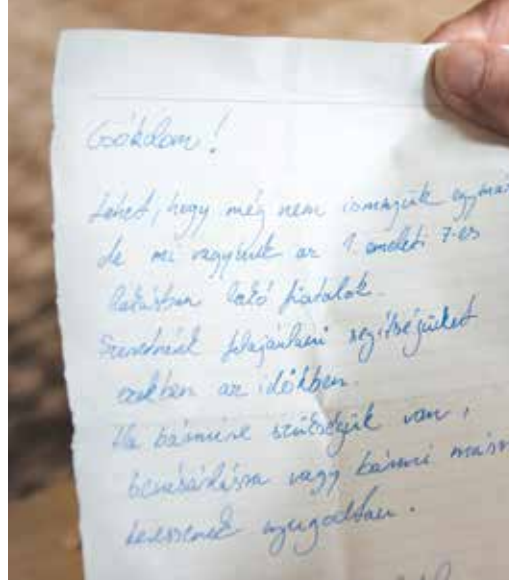 Csókolom!
Lehet, hogy még nem ismerjük egymást
de mi vagyunk az 1. emeleti 7-es
lakásban lakó fiatalok.
Szeretnénk felajánlani segítségünket
ezekben az időkben.
Ha bármire szükségük van,
bevásárlásra vagy bármi másra
keressenek nyugodtan.